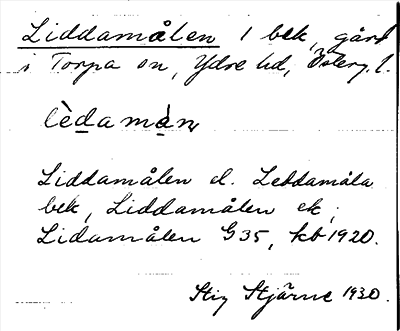 Liddamålen 1 bek, gård
i Torpa sn, Ydre hd, Österg. l.
lèdamàn
Liddamålen el. Leddamåla
bek, Liddamålen ek,
Lidamålen G35, kb 1920.
Stig Stjärne 1930.